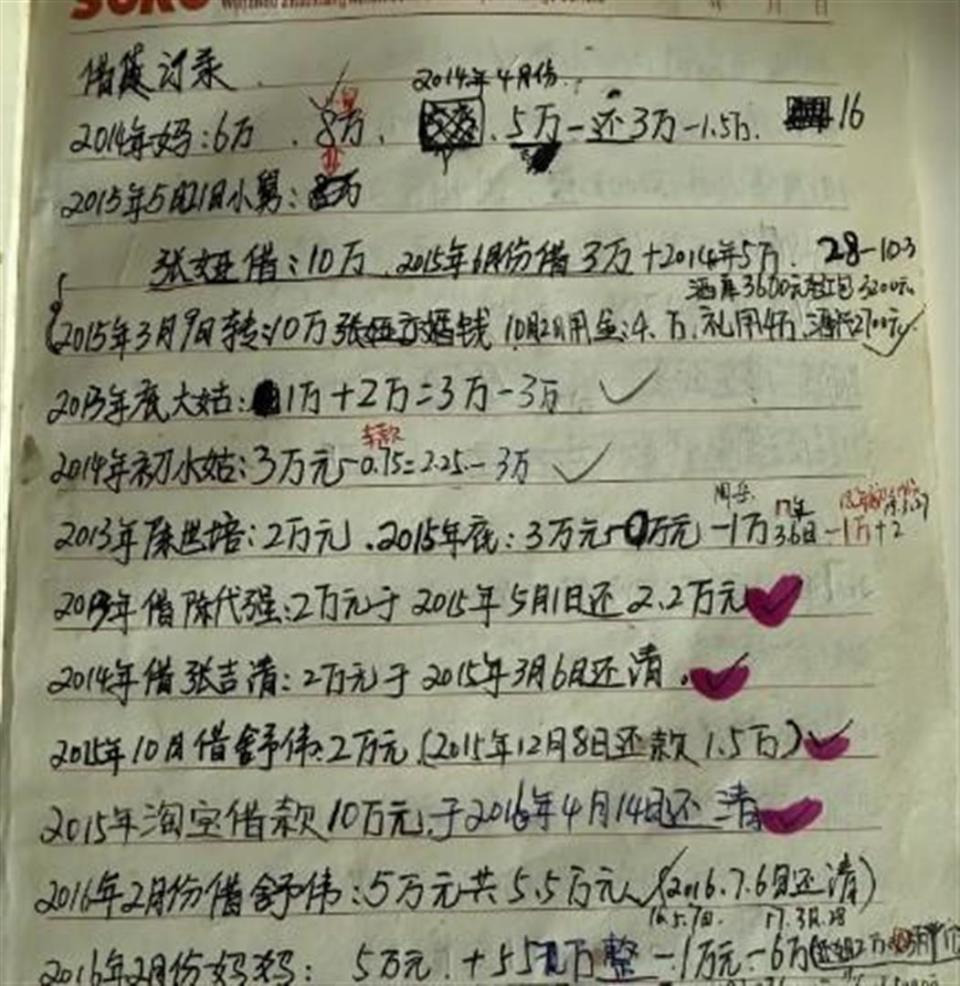 借贷记录
2014年4月份
2014年妈:6万、8万、5万-还3万-1.5万. 16
2015年5月21日小舅:
张娅借:10万.2015年6月份借3万+2014年5万. 28-10.3
酒席3600元 红包3200元
2015年3月9日转:10万张娅 婚钱 10月2日用金:4.万.礼用4万 2700元✓
2013年底大姑:1万+2万=3万-3万 ✓
车款
2014年初小姑:3万元-0.75=2.25-3万 ✓
17年
2013年陈世培:2万元.2015年底:3万元 万元-1万 3.6日-1万+2
2013年借陈代强:2万元于2015年5月1日还2.2万元✓
2014年借张吉清:2万元于2015年3月6日还清.✓
2015年10月借舒伟:2万元(2015年12月8日还款1.5万)✓
2015年淘宝借款10万元.于2016年4月14日还清✓
2016年2月份借舒伟:5万元共5.5万元(2016.7.6日还清)
16.5.7日. 17.3月.28
2016年2月份妈妈: 5万元+5 万整-1万元-6万